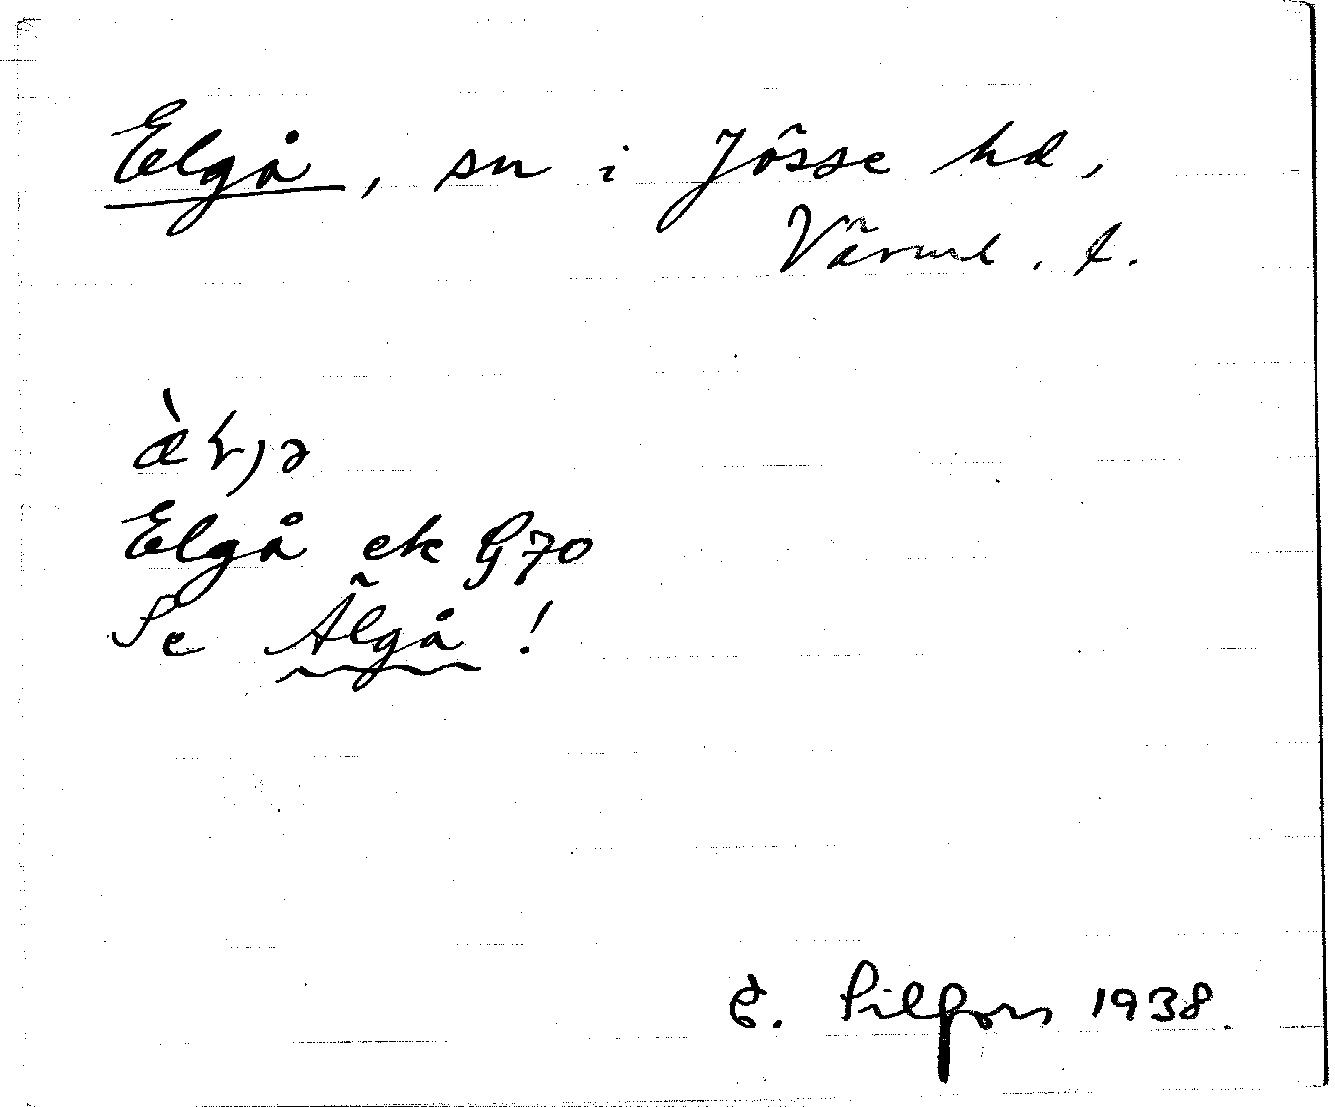 Elgå, sn i Jösse hd,
Värml. l.
Elgå ek G70
Se Älgå!
E. Pilfors 1938.